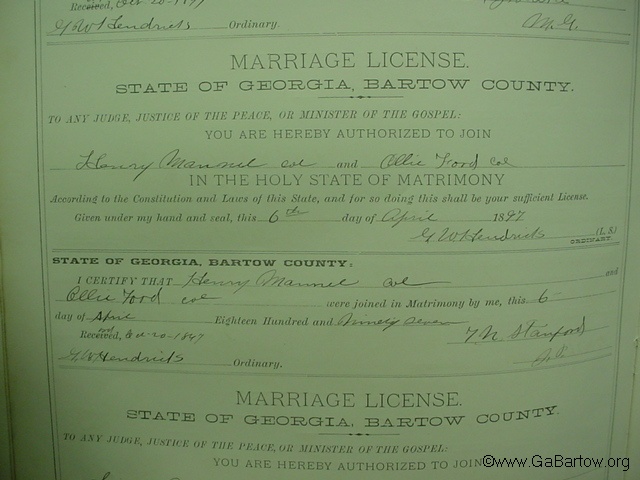 Rec Oct 20-1897
G W Hendricks Ordinary. M.G.
MARRIAGE LICENSE.
STATE OF GEORGIA, BARTOW COUNTY.
TO ANY JUDGE, JUSTICE OF THE PEACE, OR MINISTER OF THE GOSPEL:
YOU ARE HEREBY AUTHORIZED TO JOIN
Henry Mannel col and Ollie Ford col
IN THE HOLY STATE OF MATRIMONY
According to the Constitution and Laws of this State, and for so doing this shall be your sufficient License.
Given under my hand and seal, this 6th day of April 1897
G W Hendricks (L.S.)
ORDINARY.
STATE OF GEORGIA, BARTOW COUNTY:
I CERTIFY THAT Henry Mannel col and
Ollie Ford col were joined in Matrimony by me, this 6
day of April Eighteen Hundred and Ninety seven
Received, 20-1897 Stanford
G W Hendricks Ordinary.
MARRIAGE LICENSE.
STATE OF GEORGIA, BARTOW COUNTY.
TO ANY JUDGE, JUSTICE OF THE PEACE, OR MINISTER OF THE GOSPEL:
YOU ARE HEREBY AUTHORIZED TO JOIN
©www.GaBartow.org